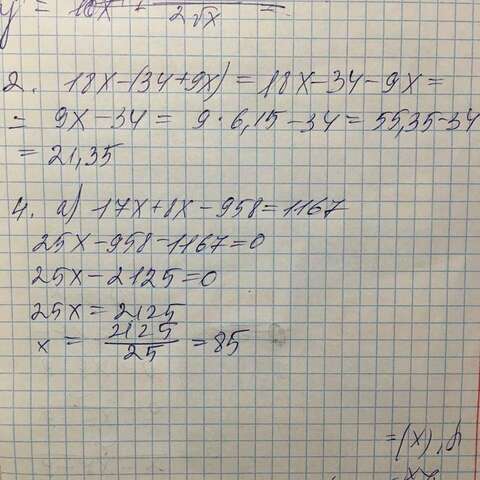 y = 10x + 2√x =
2. 18x-(34+9x) = 18x-34-9x=
= 9x-34 = 9·6,15-34 = 55,35-34
= 21,35
4. а) 17x+8x-958=1167
25x-958-1167=0
25x-2125=0
25x=2125
x = 2125/25 = 85
φ'(x)=